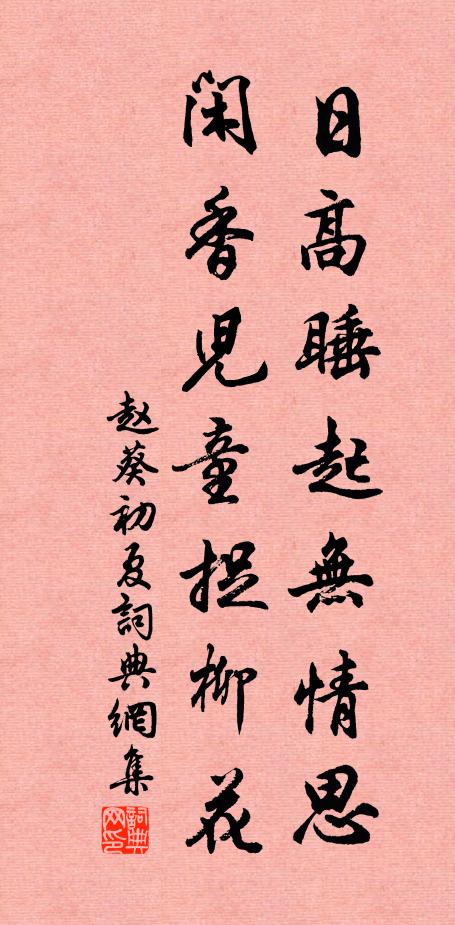 日高睡起無情思
閑看兒童捉柳花
赵葵初夏詞典網集
詞典网印